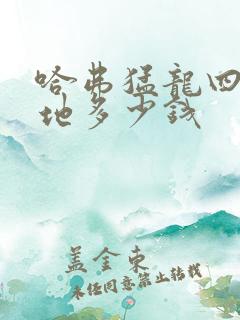 哈弗猛龍四
地多少錢
蓋金東
未经同意禁止转载